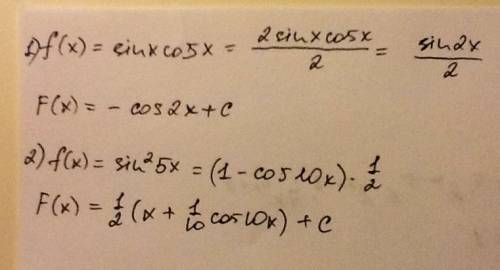 1) f(x) = sinx cosx = 2sinx cosx / 2 = sin2x / 2
F(x) = - cos2x + c
2) f(x) = sin²5x = (1 - cos10x) · 1/2
F(x) = 1/2 (x + 1/10 cos10x) + c